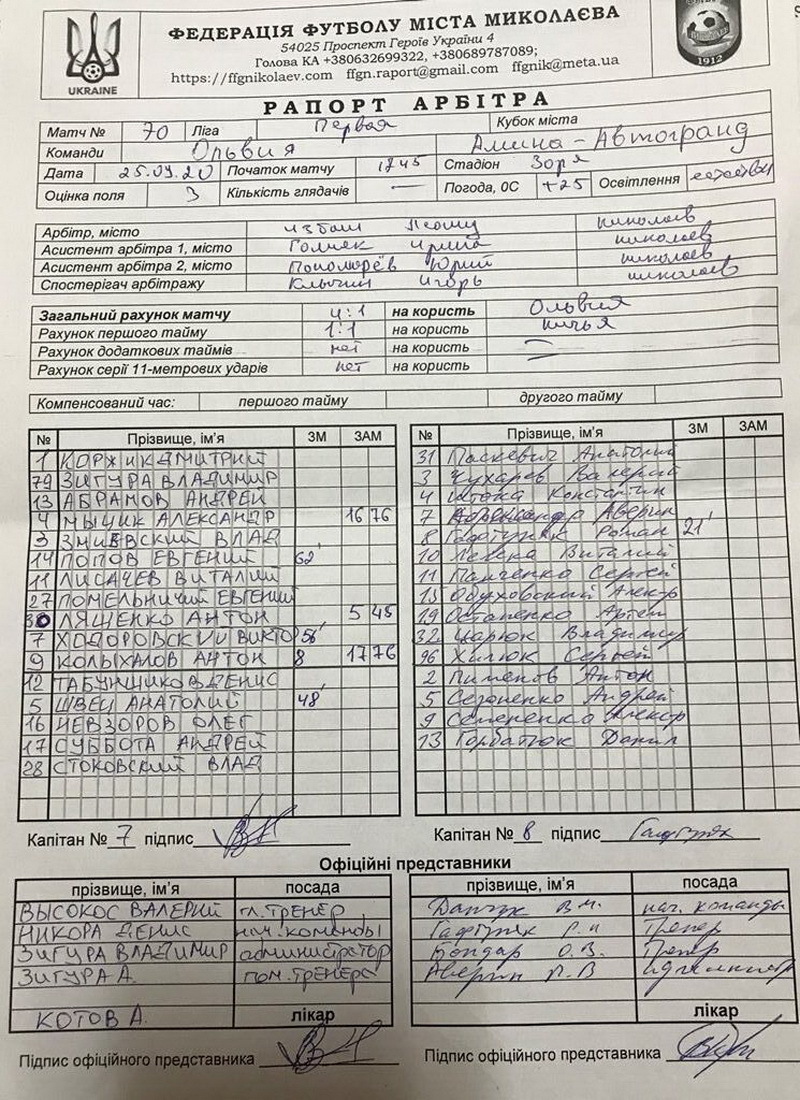 ФЕДЕРАЦІЯ ФУТБОЛУ МІСТА МИКОЛАЄВА
54025 Проспект Героїв України 4
Голова КА +380632699322, +380689787089;
https://ffgnikolaev.com ffgn.raport@gmail.com ffgnik@meta.ua
UKRAINE
1912
РАПОРТ АРБІТРА
Матч № 70 Ліга Первая Кубок міста
Команди Ольвия Амина-Автогранд
Дата 25.09.20 Початок матчу 1745 Стадіон Зоря
Оцінка поля 3 Кількість глядачів — Погода, 0С +25 Освітлення
Арбітр, місто николаев
Асистент арбітра 1, місто Ирина николаев
Асистент арбітра 2, місто Пономорёв Юрий николаев
Спостерігач арбітражу Игорь николаев
Загальний рахунок матчу 4:1 на користь Ольвия
Рахунок першого тайму 1:1 на користь ничья
Рахунок додаткових таймів нет на користь —
Рахунок серії 11-метрових ударів нет на користь —
Компенсований час: першого тайму другого тайму
№ Прізвище, ім'я ЗМ ЗАМ
1 КОРЖИК ДМИТРИЙ
79 ЗИГУРА ВЛАДИМИР
13 АБРАМОВ АНДРЕЙ
4 МЫЦИК АЛЕКСАНДР 16 76
3 ЗМИЕВСКИЙ ВЛАД
14 ПОПОВ ЕВГЕНИЙ 62'
11 ЛИСАЧЕВ ВИТАЛИЙ
27 ПОМЕЛЬНИЧИЙ ЕВГЕНИЙ
30 ЛЯШЕНКО АНТОН 5 45
7 ХОДОРОВСКИЙ ВИКТОР 56'
9 КОЛЫХАЛОВ АНТОН 8 17 76
12 ТАБУНЩИКОВ ДЕНИС
5 ШВЕЦ АНАТОЛИЙ 48'
16 НЕВЗОРОВ ОЛЕГ
17 СУББОТА АНДРЕЙ
28 СТОКОВСКИЙ ВЛАД
№ Прізвище, ім'я ЗМ ЗАМ
31 Паскевич Анатолий
3 Кухарев Валерий
4 Штока Константин
7 Аверин
8 Гафтуняк Роман 21'
10 Левена Виталий
11 Панченко Сергей
15 Обуховский Алекр
19 Остапенко Артем
32 Царюк Владимир
96 Хилюк Сергей
2 Пименов Антон
5 Сезоненко Андрей
9 Семененко Алекср
13 Горбатюк Данил
Капітан № 7 підпис
Капітан № 8 підпис Гафтуняк
Офіційні представники
прізвище, ім'я посада
ВЫСОКОС ВАЛЕРИЙ гл. ТРЕНЕР
НИКОРА ДЕНИС нач. команды
ЗИГУРА ВЛАДИМИР администратор
ЗИГУРА А. пом. ТРЕНЕРА
КОТОВ А. лікар
Підпис офіційного представника
прізвище, ім'я посада
В.М. нач. команды
Гафтуняк Р.И Тренер
Бондар О.В. Тренер
Аверин П.В
лікар
Підпис офіційного представника